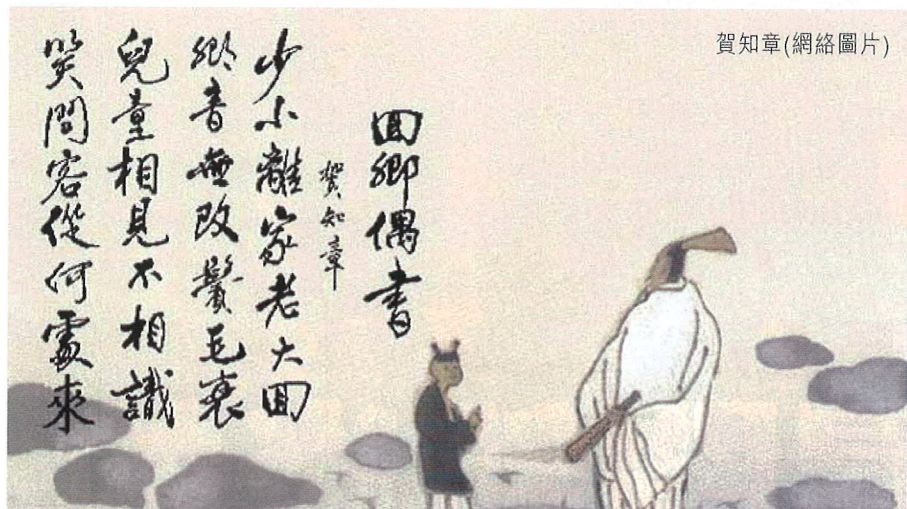 賀知章(網絡圖片)
回鄉偶書
賀知章
少小離家老大回
鄉音無改鬢毛衰
兒童相見不相識
笑問客從何處來